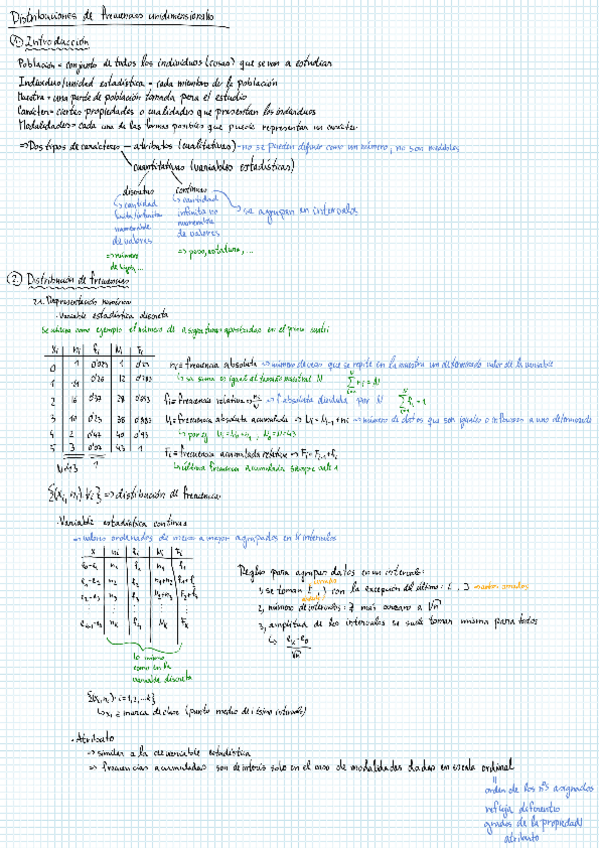 Distribuciones de frecuencias unidimensionales
① Introducción
Población = conjunto de todos los individuos (cosas) que se van a estudiar
Individuo/unidad estadística = cada miembro de la población
Muestra = una parte de población tomada para el estudio
Carácter = ciertas propiedades o cualidades que presentan los individuos
Modalidades = cada una de las formas posibles que puede representar un carácter
⇒ Dos tipos de caracteres – atributos (cualitativos) - no se pueden definir como un número, no son medibles
cuantitativos (variables estadísticas)
discretas
↳ cantidad
finita/infinita
numerable
de valores
⇒ número
de hijos, ...
continuas
↳ cantidad
infinita no
numerable
de valores
⇒ peso, estatura, ...
→ se agrupan en intervalos
② Distribución de frecuencias
2.1. Representación numérica
· Variable estadística discreta
Se utiliza como ejemplo el número de asignaturas aprobadas en el primer
xi ni fi Ni Fi
0 1
1
2 16 28
3 10 38
4 2 40
5 3 43 1
N=43 1
ni = frecuencia absoluta ⇒ número de veces que se repite en la muestra un determinado valor de la variable
↳ su suma es igual al tamaño muestral N
fi = frecuencia relativa ⇒ f. absoluta dividida por N
Ni = frecuencia absoluta acumulada → Ni = Ni-1 + ni → número de datos que son iguales o inferiores a uno determinado
Fi = frecuencia acumulada relativa → Fi = Fi-1 + fi
↳ última frecuencia acumulada siempre vale 1
⇒ distribución de frecuencia
· Variable estadística continua
→ valores ordenados de menor a mayor agrupados en K intervalos
x ni fi Ni Fi
lo mismo
como en la
variable discreta
Reglas para agrupar datos en un intervalo:
1, se toman [ , ) con la excepción del último: [ , ]
2, número de intervalos: Z más cercano a √n
3, amplitud de los intervalos se suele tomar misma para todos
{(xi, ni) i=1,2,...k}
↳ xi = marca de clase (punto medio de i-ésimo intervalo)
· Atributo
⇒ similar a la de variable estadística
⇒ frecuencias acumuladas son de interés solo en el caso de modalidades dadas en escala ordinal
orden de los nºs asignados
refleja diferentes
grados de la propiedad/
atributo